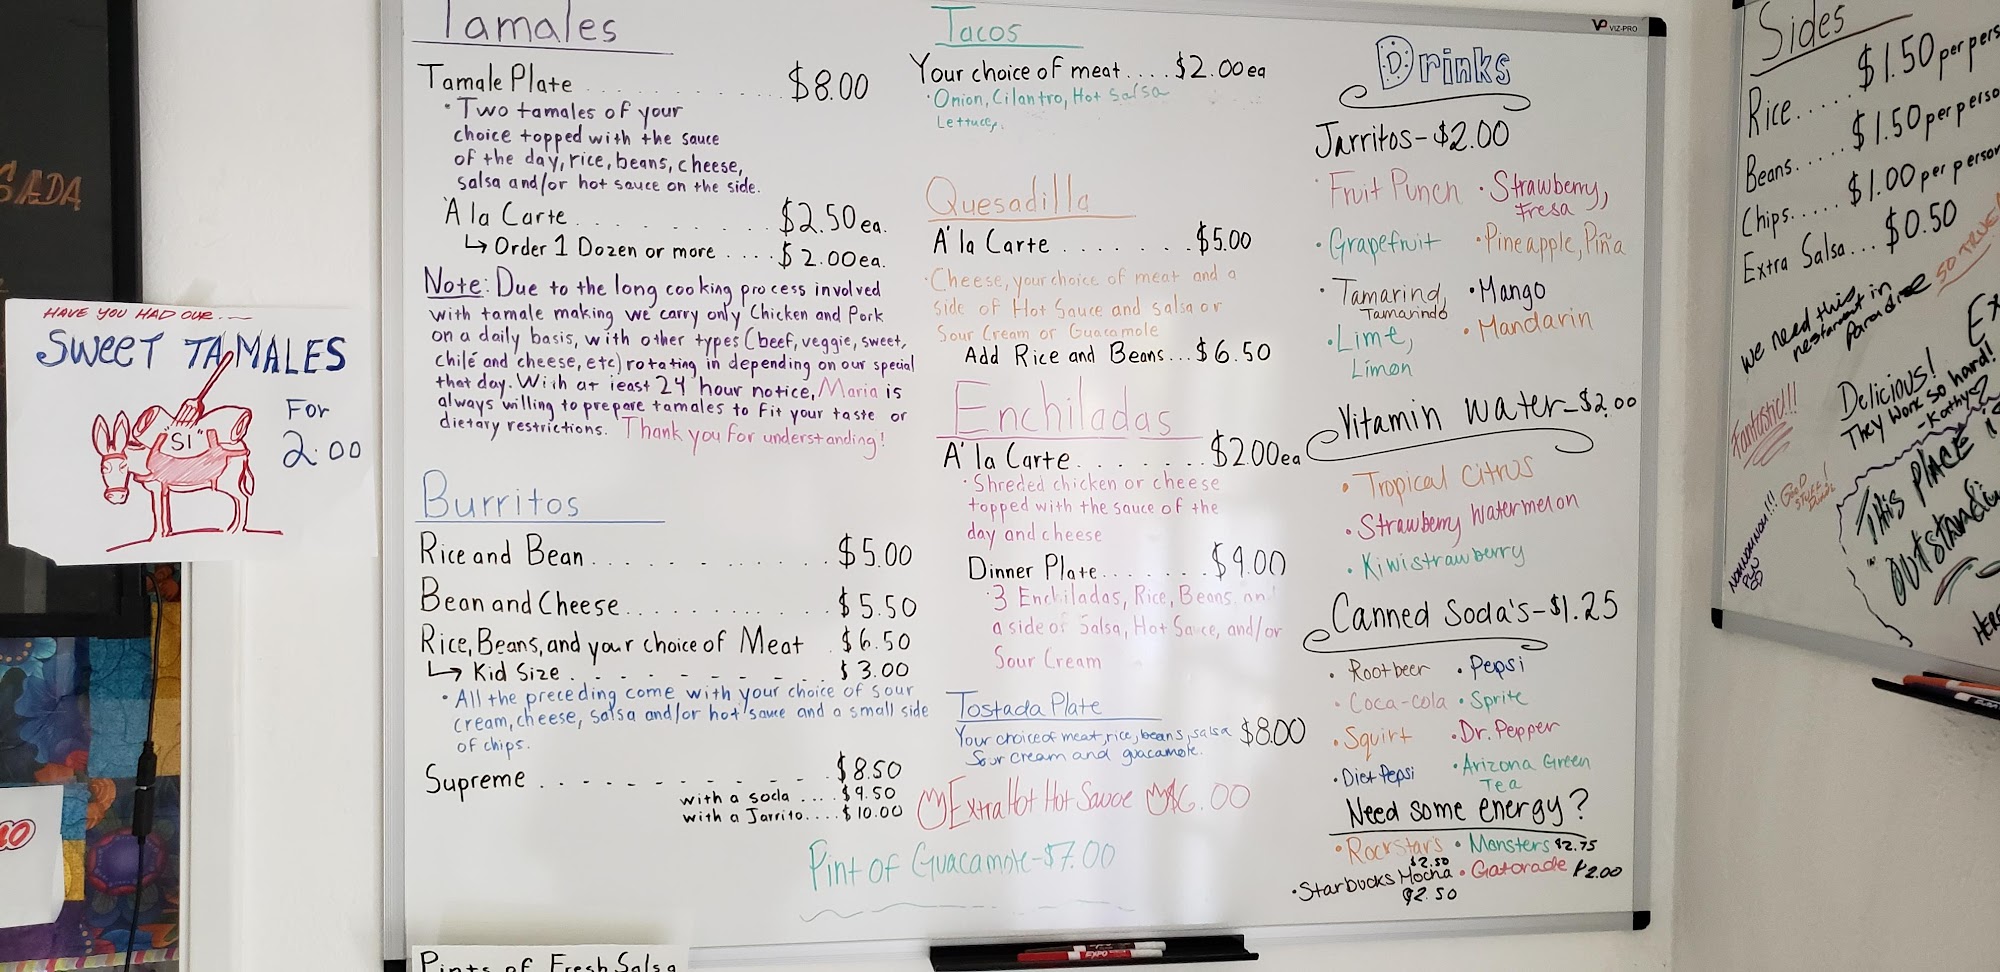 SADA
HAVE YOU HAD OUR...
SWEET TAMALES
FOR
2.00
"SI"
Tamales
Tamale Plate . . . . . . . . . . $8.00
• Two tamales of your
choice topped with the sauce
of the day, rice, beans, cheese,
salsa and/or hot sauce on the side.
A la Carte . . . . . . . . . $2.50 ea.
↳ Order 1 Dozen or more . . . . $2.00ea.
Note: Due to the long cooking process involved
with tamale making we carry only Chicken and Pork
on a daily basis, with other types (beef, veggie, sweet,
chilé and cheese, etc) rotating in depending on our special
that day. With at least 24 hour notice, Maria is
always willing to prepare tamales to fit your taste or
dietary restrictions. Thank you for understanding!
Burritos
Rice and Bean . . . . . . . . . $5.00
Bean and Cheese . . . . . . . . . $5.50
Rice, Beans, and your choice of Meat . $6.50
↳ Kid Size . . . . . . . . . $3.00
• All the preceding come with your choice of sour
cream, cheese, salsa and/or hot sauce and a small side
of chips.
Supreme . . . . . . . . . . $8.50
with a soda .... $9.50
with a Jarrito.... $10.00
Tacos
Your choice of meat .... $2.00 ea
• Onion, Cilantro, Hot Salsa
Lettuce,
Quesadilla
A' la Carte . . . . . . . . $5.00
• Cheese, your choice of meat and a
side of Hot Sauce and salsa or
Sour Cream or Guacamole
Add Rice and Beans... $6.50
Enchiladas
A' la Carte. . . . . . . $2.00ea
• Shreded chicken or cheese
topped with the sauce of the
day and cheese
Dinner Plate. . . . . . . $9.00
• 3 Enchiladas, Rice, Beans, and
a side of Salsa, Hot Sauce, and/or
Sour Cream
Tostada Plate
Your choice of meat, rice, beans, salsa $8.00
Sour cream and guacamole.
Extra Hot Hot Sauce $6.00
Pint of Guacamole-$7.00
VIZ-PRO
Drinks
Jarritos-$2.00
• Fruit Punch • Strawberry,
Fresa
• Grapefruit • Pineapple, Piña
• Tamarind, • Mango
Tamarindo
• Lime, • Mandarin
Limón
Vitamin Water-$2.00
• Tropical Citrus
• Strawberry Watermelon
• Kiwistrawberry
Canned Soda's-$1.25
• Rootbeer • Pepsi
• Coca-cola • Sprite
• Squirt • Dr. Pepper
• Diet Pepsi • Arizona Green
Tea
Need some energy?
• Rockstar's • Monsters $2.75
$2.50
• Starbucks Mocha • Gatorade $2.00
$2.50
EXPO
Pints of Fresh Salsa
Sides
Rice..... $1.50 per pers
Beans..... $1.50 per perso
Chips..... $1.00 per person
Extra Salsa... $0.50
We need this
restaurant in
Paradise SO TRUE!
Fantastic!!!
Delicious!
They work so hard!
-Kathy
GOOD
STUFF
This PLACE i
OUTSTANDi
HERE